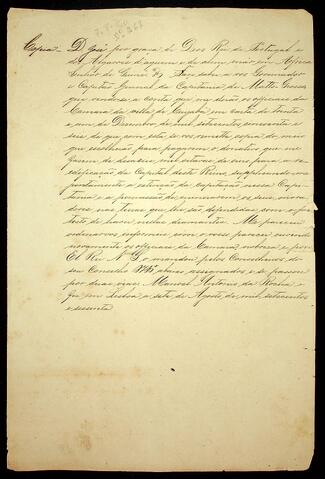 Copia = D. José por graça de Deos Rei de Portugal e
dos Algarves d'aquem e de alem mar em Africa
Senhor de Guiné &ª Faço saber a vos Governador
e Capitão General da Capitania de Matto Grosso
que vendo-se a conta que me derão os officiaes da
Camara da villa de Cuyabá em carta de trinta
e um de Dezembro de mil setecentos cincoenta e
seis de que com esta se vos remette copia do meio
que escolhião para pagarem o donativo que me
fazem de dezaseis mil oitavas de ouro para a re-
edificação da Capital deste Reino, supplicando-me
juntamente a extenção da capitação nessa Capi-
tania e a permissão de minerarem os seus mora-
dores nas terras que lhe são defendidas com o pre-
texto de haver nellas diamantes. Me pareceo
ordenar-vos informeis com o vosso parecer ouvindo
novamente os officiaes da Camara nobreza e povo
El Rei N. S. o mandou pelos Conselheiros do
seu Conselho Ultrº abaixo assignados e se passou
por duas vias. Manoel Antonio da Rocha a
fez em Lisboa a sete de Agosto de mil setecentos
e sessenta